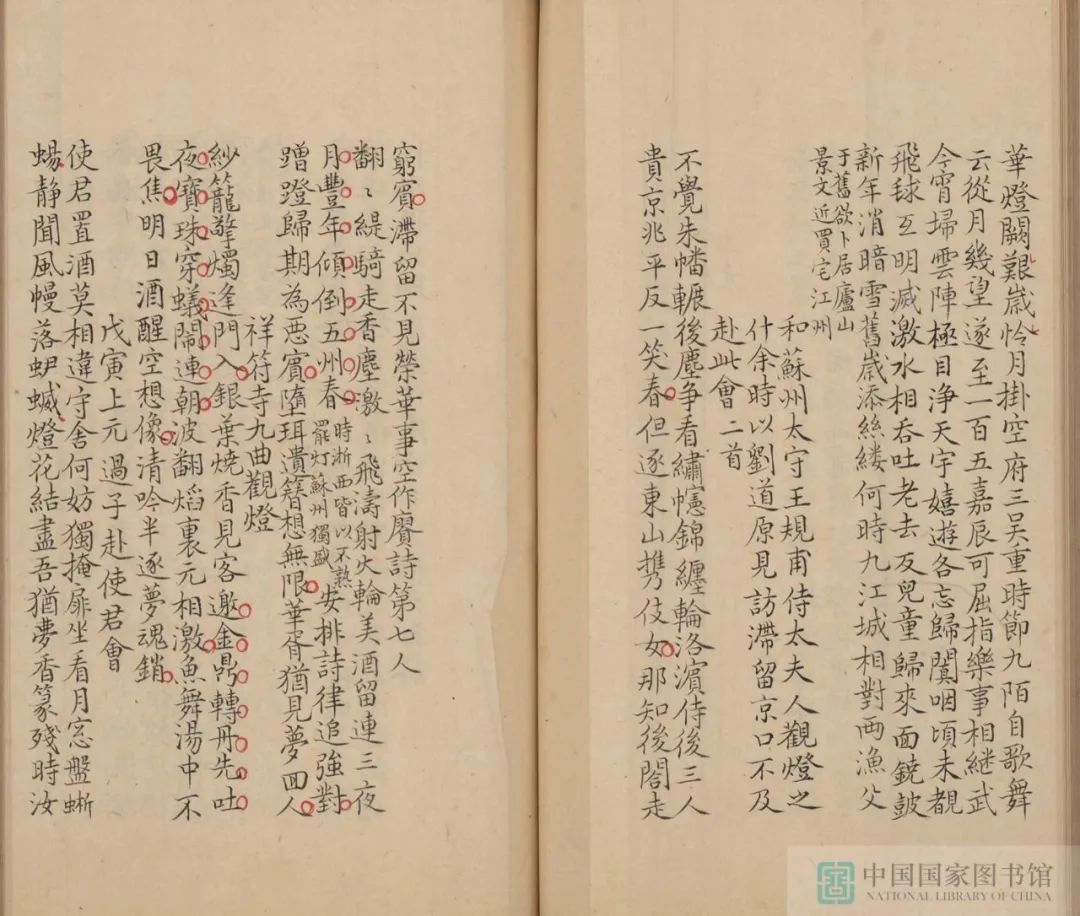 華燈閟艱歲怜月掛空府三吴重時節九陌自歌舞
云從月幾望遂至一百五嘉辰可屈指樂事相継武
今宵埽雲陣極目浄天宇嬉遊各忘歸闐咽頃未覩
飛毬互明滅激水相吞吐老去反兒童歸來面鐃皷
新年消暗雪舊歲添絲縷何時九江城相對兩漁父
于舊欲卜居廬山
景文近買宅江州
和蘇州太守王規甫侍太夫人觀燈之
什余時以劉道原見訪滯留京口不及
赴此會二首
不覺朱幡輾後塵争看繡幰錦纏輪洛濱侍後三人
貴京兆平反一笑春但逐東山携伎女那知後閤走
窮賓滯留不見榮華事空作賡詩第七人
翻〻緹騎走香塵激〻飛濤射火輪美酒留連三夜
月豐年傾倒五州春時淅西皆以不熟
罷灯蘇州獨盛安排詩律追強對
蹭蹬歸期為惡賓墮珥遺簪想無限華胥猶見夢回人
祥符寺九曲觀燈
紗籠擎燭逢門入銀葉燒香見客邀金鼎轉丹先吐
夜寶珠穿蟻鬧連朝波翻焰裏元相激魚舞湯中不
畏焦明日酒醒空想像清吟半逐夢魂銷
戊寅上元過子赴使君會
使君置酒莫相違守舍何妨獨掩扉坐看月窓盤蜥
蜴静聞風幔落蛜蝛燈花結盡吾猶夢香篆殘時汝
中国国家图书馆
NATIONAL LIBRARY OF CHINA